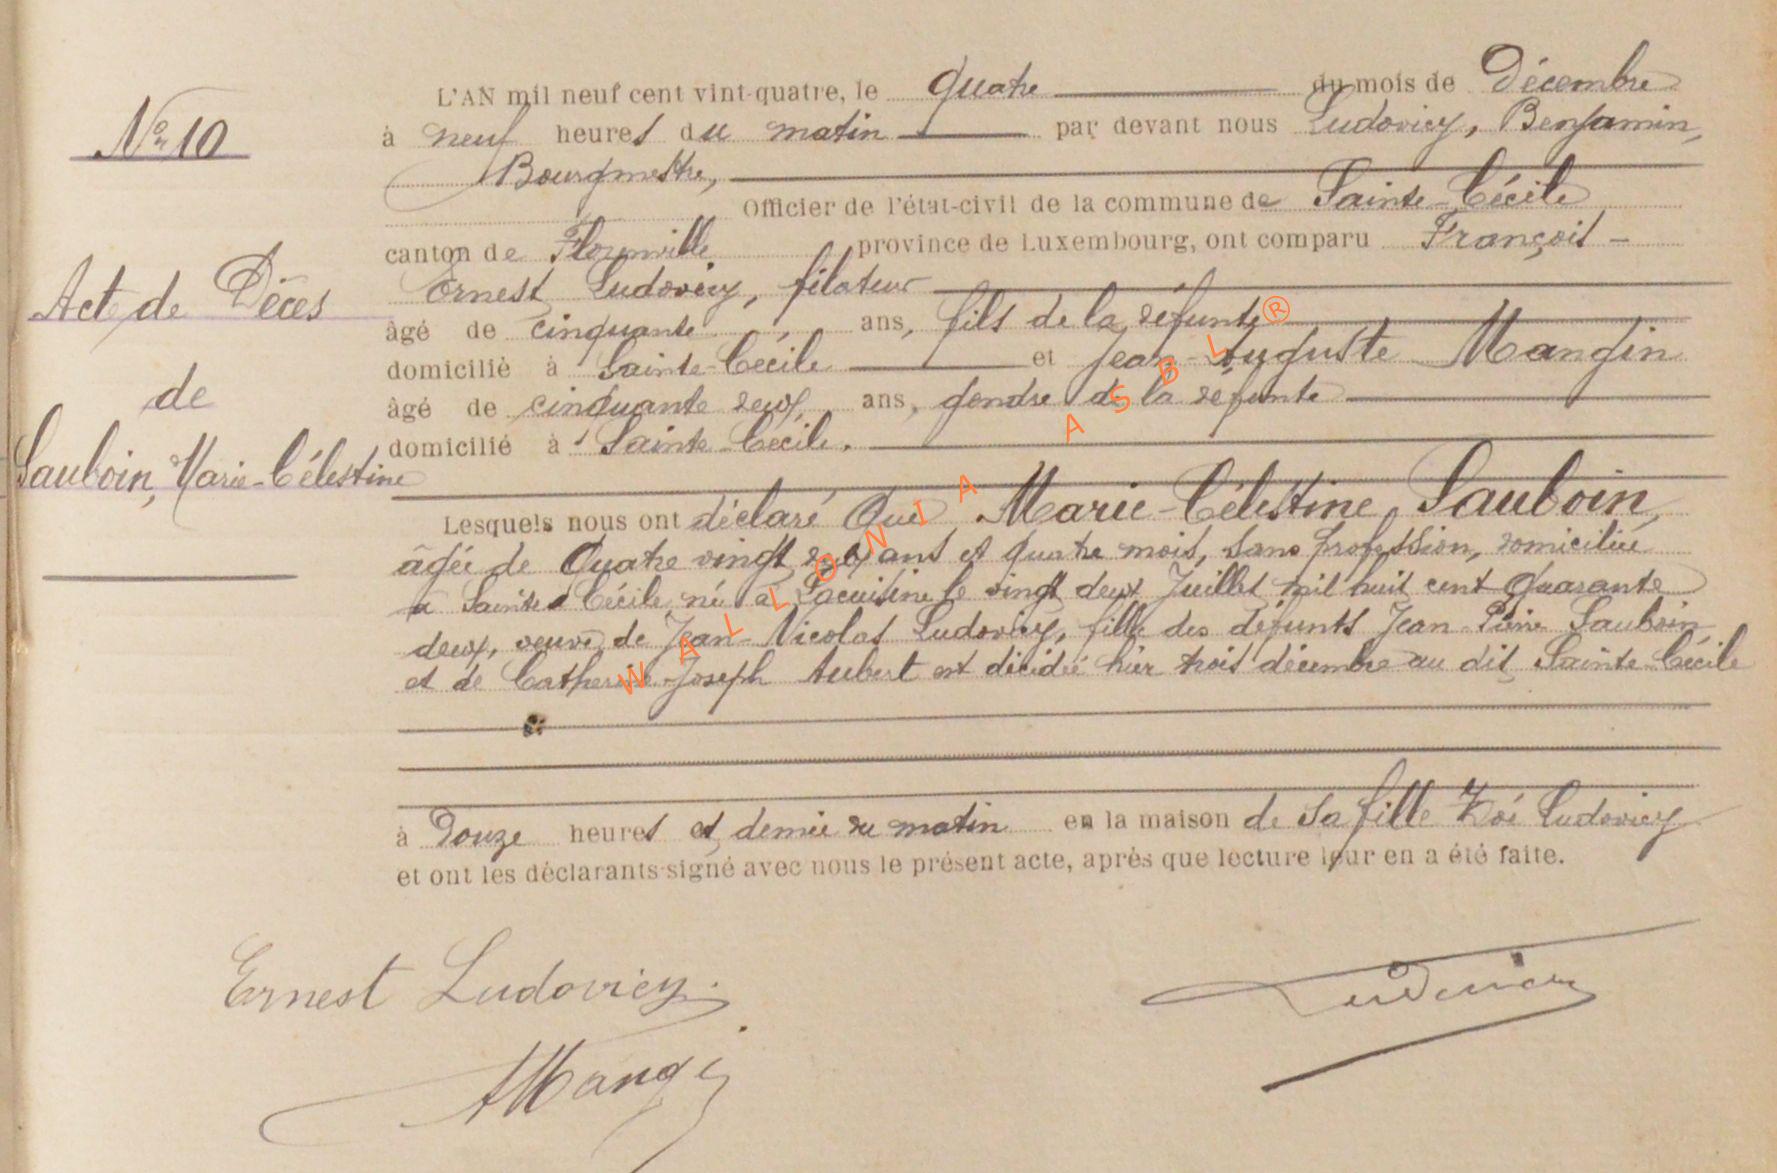 N° 10
Acte de Décès
de
Sauboin, Marie-Célestine
L'AN mil neuf cent vint-quatre, le quatre du mois de Décembre
à neuf heures du matin par devant nous Ludovicy, Benjamin,
Bourgmestre,
Officier de l'état-civil de la commune de Sainte-Cécile
canton de Florenville province de Luxembourg, ont comparu François-
Ernest Ludovicy, filateur
âgé de cinquante ans, fils de la défunte
domicilié à Sainte-Cécile et Jean-Auguste Mangin
âgé de cinquante deux ans, gendre de la défunte
domicilié à Sainte-Cécile.
Lesquels nous ont déclaré que Marie-Célestine Sauboin,
âgée de quatre vingt deux ans et quatre mois, sans profession, domiciliée
à Sainte Cécile, né à Lacuisine le vingt deux Juillet mil huit cent quarante
deux, veuve de Jean-Nicolas Ludovicy, fille des défunts Jean-Pierre Sauboin
et de Catherine-Joseph Aubert est décédée hier trois décembre au dit Sainte-Cécile
à Douze heures et demie du matin en la maison de sa fille Zoé Ludovicy
et ont les déclarants signé avec nous le présent acte, après que lecture leur en a été faite.
Ernest Ludovicy.
Ludovicy
AMangin
WALLONIA ASBL®